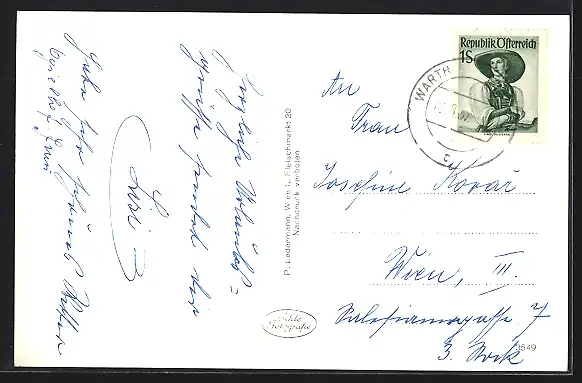 Herzliche Urlaubs=
grüße sendet der
Lisi
Habe sehr schönes Wetter
P. Ledermann, Wien I., Fleischmarkt 20
Nachdruck verboten
Echte
Fotografie
Republik Österreich
1S
WARTH
An
Frau
Josefine Kovar
Wien, III.
Salesianergasse 7
3. Stock
3549